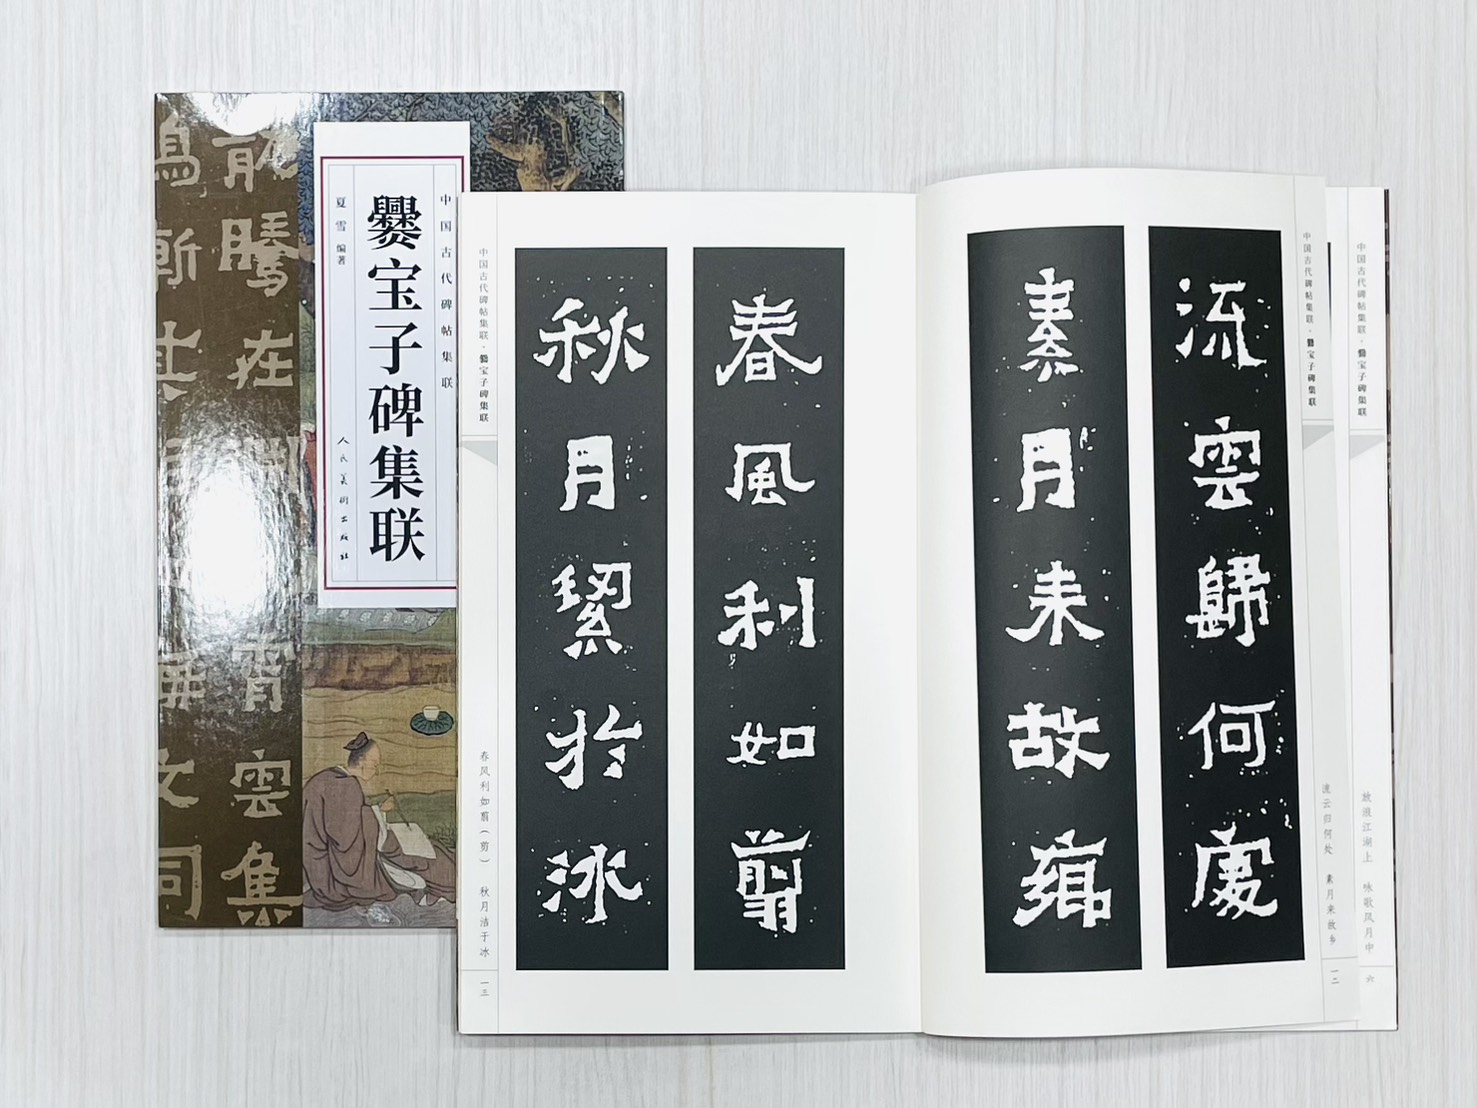 中国古代碑帖集联
爨宝子碑集联
夏雪 编著
人民美術出版社
龍騰在淵
霄雲集
中国古代碑帖集联·爨宝子碑集联
流雲歸何處
素月来故鄉
流云归何处 素月来故乡
一二
春風利如翦
秋月絜於冰
春风利如翦（剪） 秋月洁于冰
一三
中国古代碑帖集联·爨宝子碑集联
中国古代碑帖集联·爨宝子碑集联
放浪江湖上 咏歌风月中
六